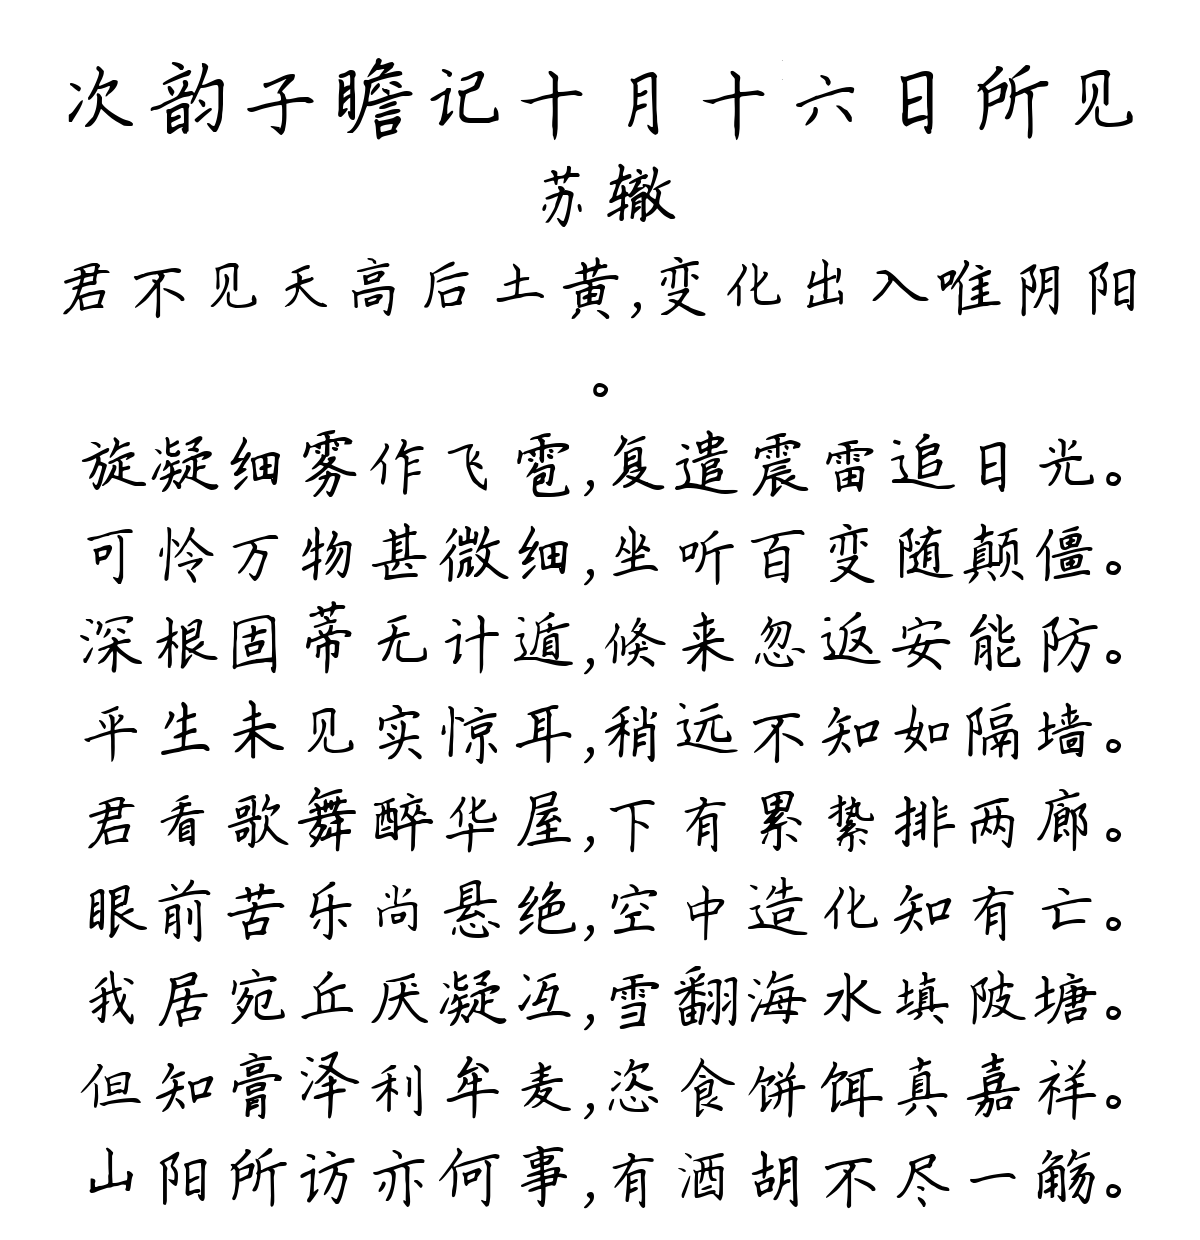 次韵子瞻记十月十六日所见
苏辙
君不见天高后土黄,变化出入唯阴阳
。
旋凝细雾作飞雹,复遣震雷追日光。
可怜万物甚微细,坐听百变随颠僵。
深根固蒂无计遁,倏来忽返安能防。
平生未见实惊耳,稍远不知如隔墙。
君看歌舞醉华屋,下有累絷排两廊。
眼前苦乐尚悬绝,空中造化知有亡。
我居宛丘厌凝冱,雪翻海水填陂塘。
但知膏泽利牟麦,恣食饼饵真嘉祥。
山阳所访亦何事,有酒胡不尽一觞。